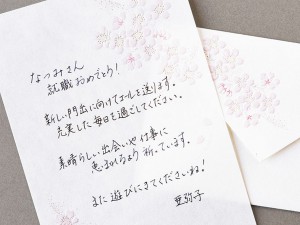 なつみさん
就職おめでとう!
新しい門出に向けてエールを送ります。
充実した毎日を過ごしてくださいね。
素晴らしい出会いや仕事に
恵まれるよう祈っています。
また遊びにきてくださいね!
亜弥子